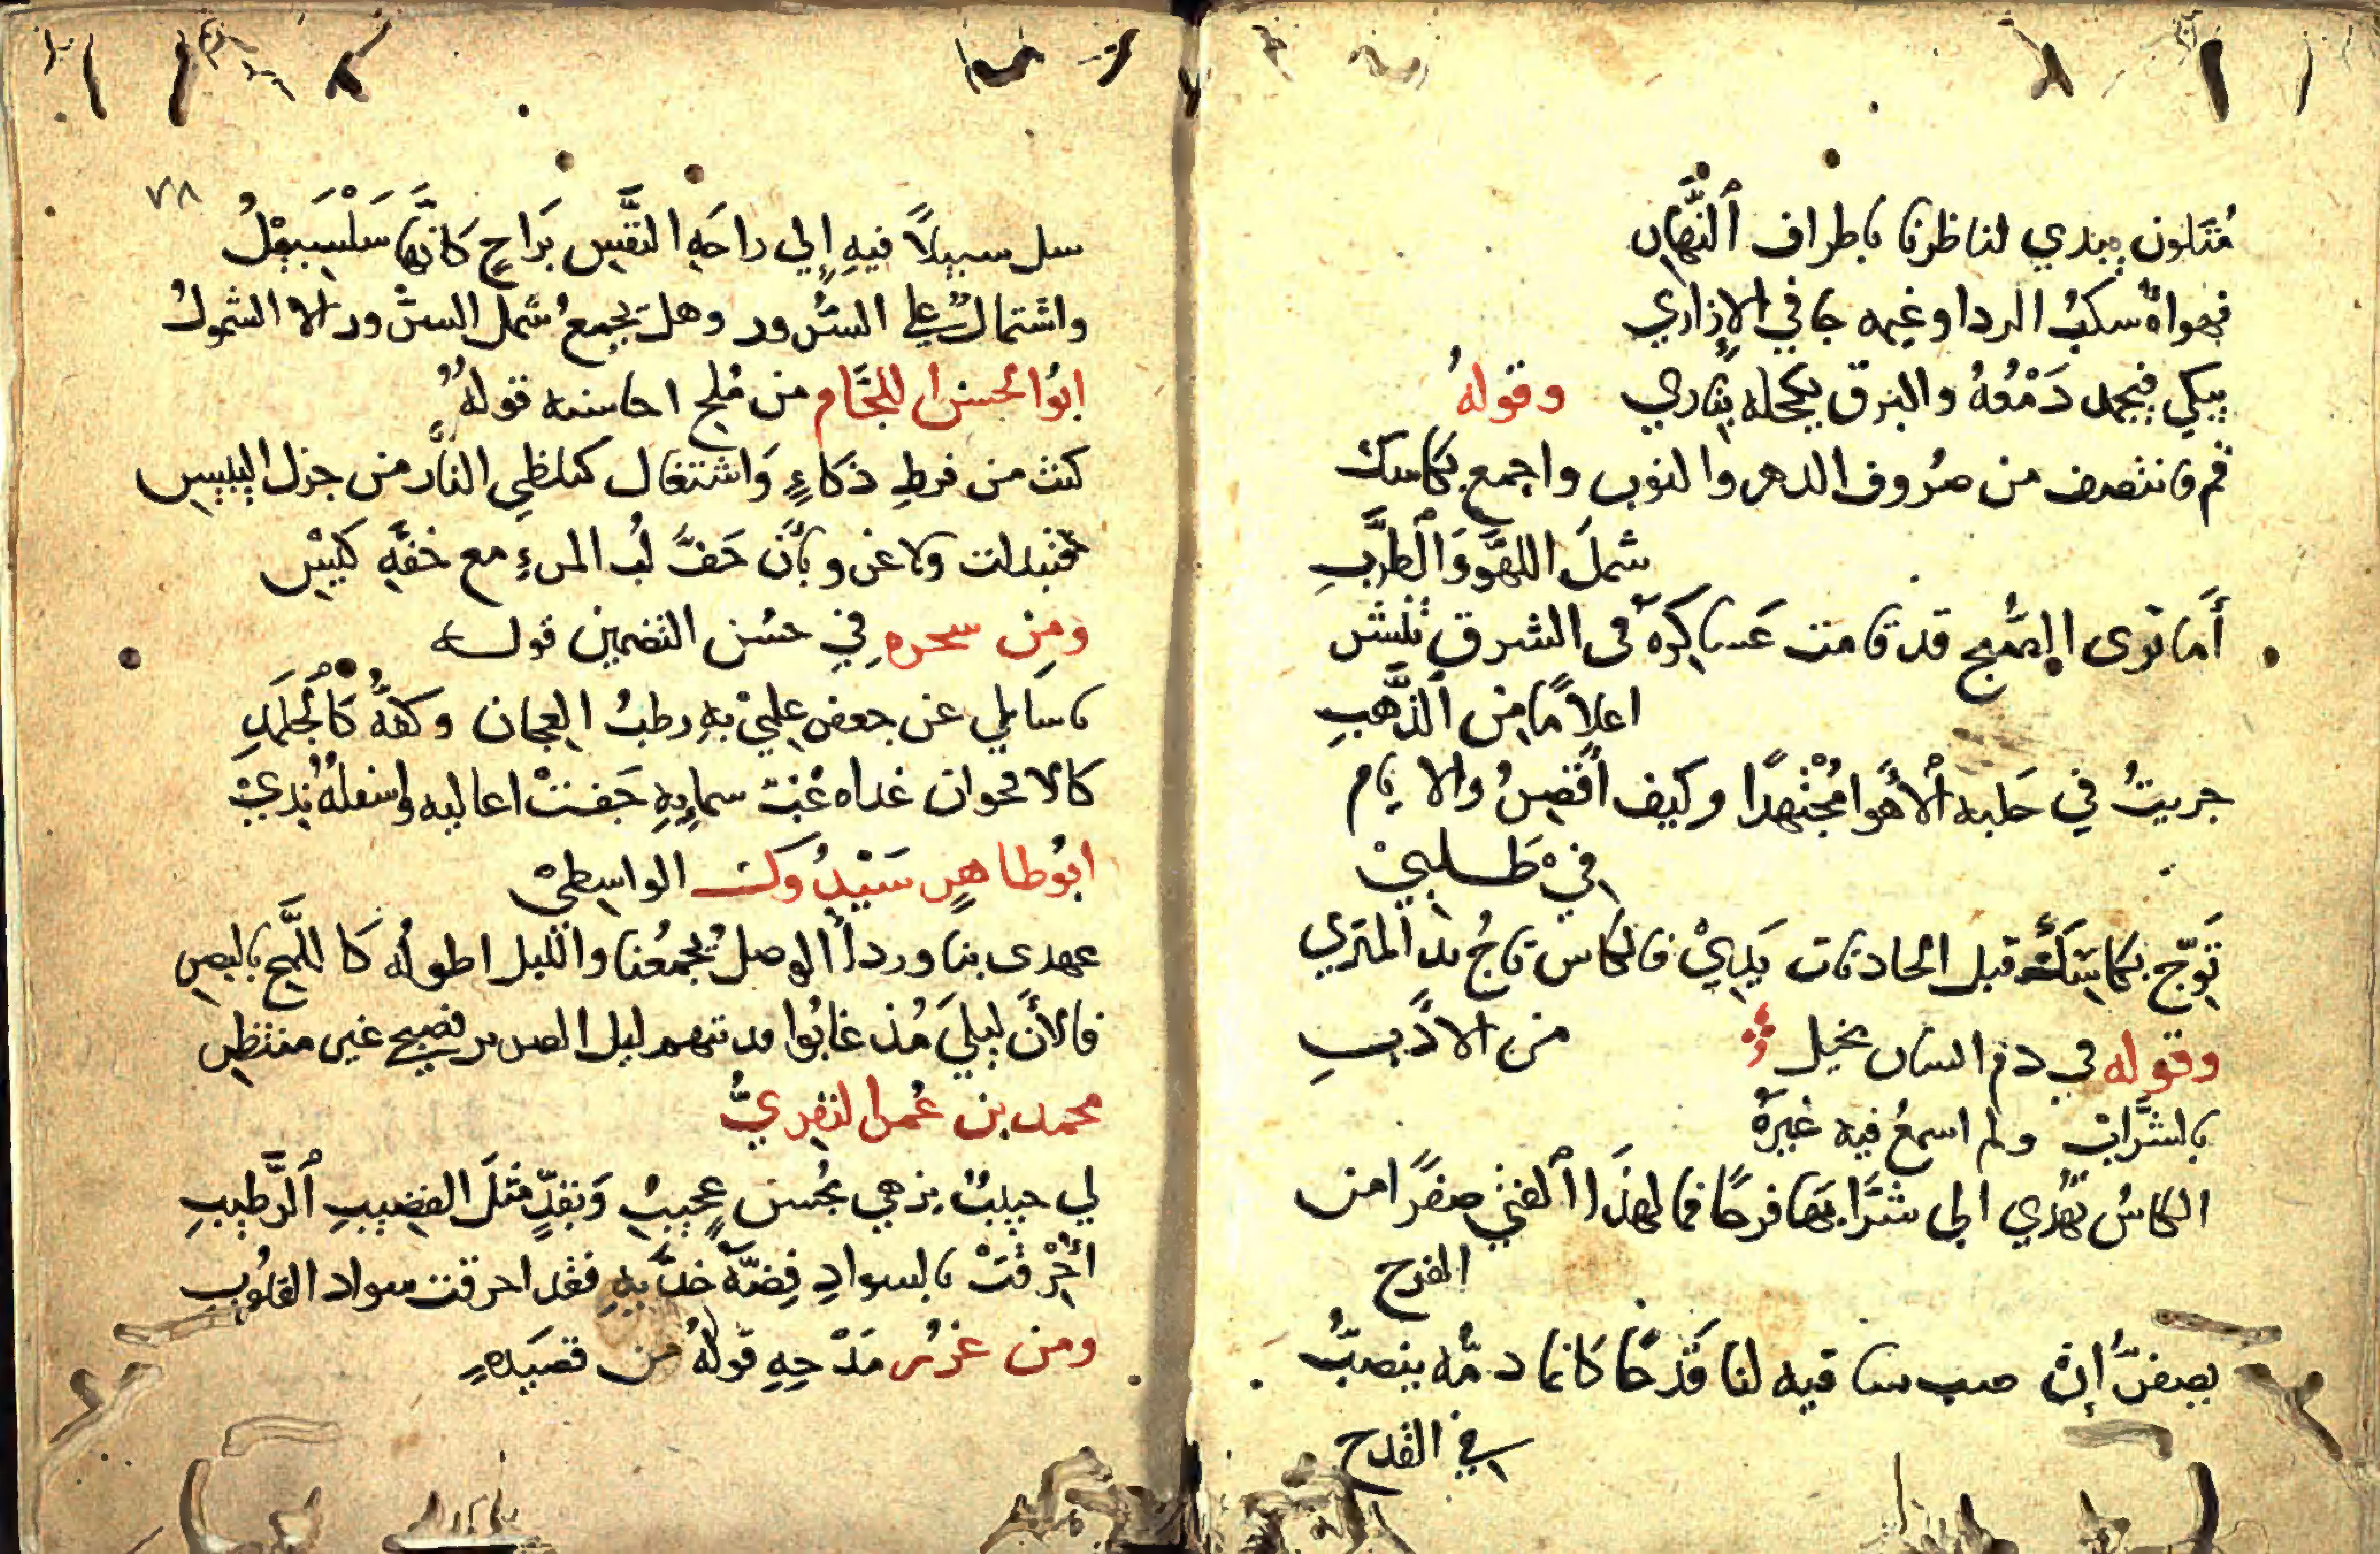 مُتَلون يبدي لناظرنا باطراف ٱلنَّهارِ
فهواهُ سكبُ الردا وغيمه جافي الإزاري
يبكي فيجمد دَمْعُهُ والبرق يكحله بناري وقولهُ
قم فانتصف من صُروف الدهر والنوب واجمع بكاسك
شملَ اللهَّو وَٱلطرَّبِ
أَما ترى الصُّبح قد قامت عَساكرهُ في الشرق تنشر
اعلامًا من ٱلذَّهبِ
جريتُ في حَلبه ٱلأهَوا مُجْتهدًا وكيف اقصرُ والايام
في طَلبيْ
تَوّج بكاسَكَ قبل الحادثات يَدِيْ فالكاس تاجُ يد المثري
من الادَبِ
وقوله في ذم انسان بخيل
بالشَّراب ولم اسمعُ فيه غيَرهُ
الكاسُ تهُدي الى شَرَّابها فرحًا فما لهذَا ٱلفتى صفرًا من
الفرح
يصفرّ إن صب ساقيه لنا قَدحًا كانما دمُّه ينصبُّ
في القدح
٧٨
سل سبيلاً فيهِ إلي راحَهِ النَّفسِ بَراحٍ كَانَّها سَلْسَبيْلُ
واشتمالٌ علي السُّرور وهل يجمعُ شمل السرْور الا الشمولُ
ابُوا لحسن اللحَّام من مُلح احاسنه قولهُ
كنت من فرطِ ذكاءٍ وَاشتغال كلظي النَّار من جزل اليبيس
فتبدلت ولا غرو بأنَ خَفَّ لُب المرءِ مع خفهَّ كيْس
ومِن سحره في حسُن التضمين قوله
ياسَايلي عن جعفر عِلميْ بهِ رطبُ العجان وكفهُّ كَالْجَلمَدِ
كالاقحوان غداه غبَّ سمايهِ جَفتْ اعاليه واسفلهُ نديْ
ابُوطاهرٍ سَيْدُوك الواسِطيْ
عهدي بنا وردأُ الوصل يُجمعُنا والليل اطولُه كَاللَّمح بالبصرِ
فالأنَ ليليَ مُذ غابُوا فديتهم ليل الضرير فصبح غير منتظرِ
محمد بن عُمر النفريُّ
لي حبيبٌ يزهي بحُسن عجيبٍ وَبقدٍّ مثلَ القضيبِ ٱلرَّطيبِ
أَحْرقَتْ بالسوادِ فِضَّهَ خدَّيهِ فقد احرقت سواد القلوُبِ
ومن غررُ مَدْحِهِ قولهُ من قصيَدهٍ